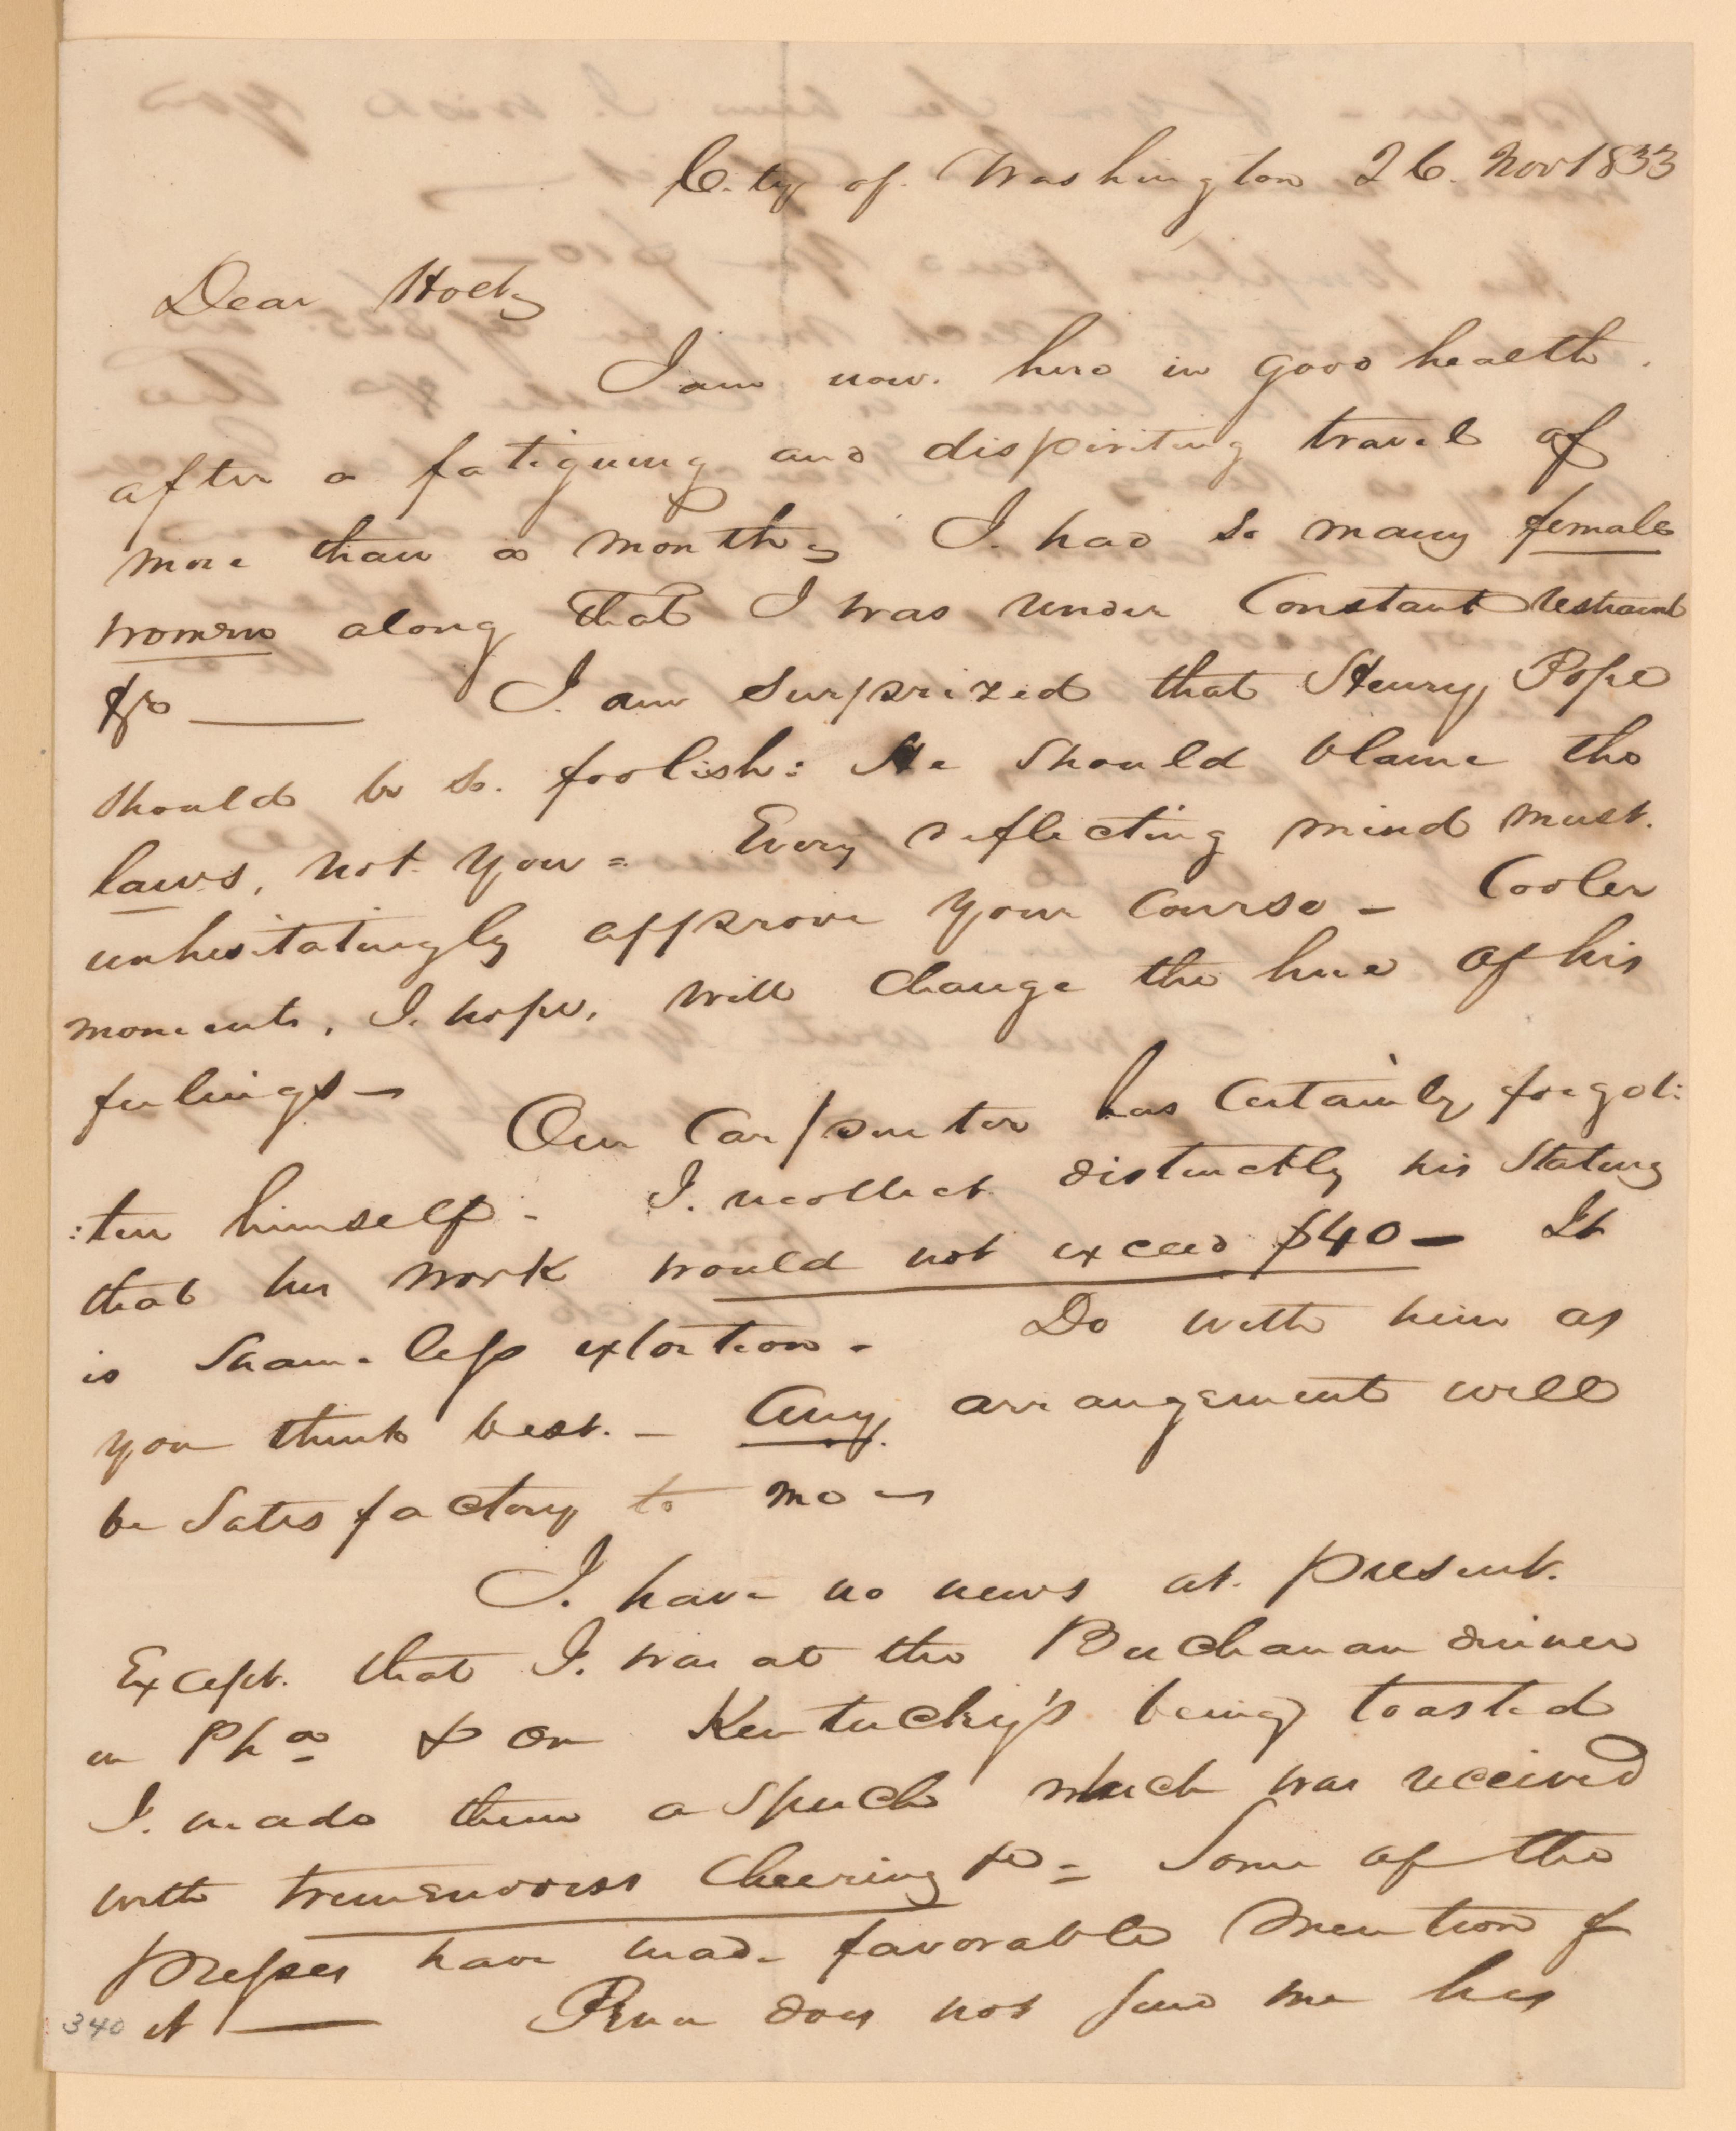 City of Washington 26. Nov 1833
Dear Holt,
I am now. here in good health.
after a fatiguing and dispiriting travel of
more than a month, I. had so many female
women along that I was under Constant restraint
&c —— I am surprized that Henry Pope
should be so. foolish: He should blame the
laws, not you = Every reflecting mind must.
unhesitatingly approve your course — Cooler
moments, I. hope, will change the hue of his
feelings — Our Carpenter has certainly forgot:
:ten himself - I. recollect distinctly his stating
that his work would not exceed $40 — It
is shameless extortion - Do with him as
you think best. — Any, arrangement will
be satisfactory to me —
I. have no news at. present.
Except. that I. was at the Buchanan dinner
in Pha & on Kentucky's being toasted
I. made them a speech which was received
with tremendous cheering &c = Some of the
presses have made favorable mention of
340 it —— does not send me his